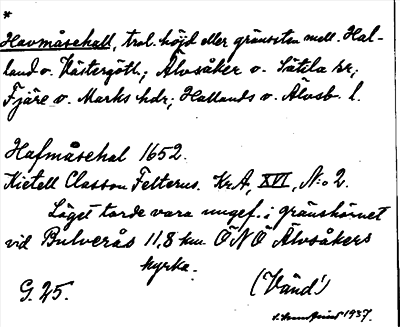 *
Havmåsehall, trol. höjd eller gränssten mell. Hal-
land o. Västergötl.; Älvsåker o. Sätila sr;
Fjäre o. Marks hdr; Hallands o. Älvsb. l.
Hafmåsehal 1652.
Kietell Classon Felterus. Kr.A, XVI, N:o 2.
Läget torde vara ungef. i gränshörnet
vid Bulverås 11,8 km. ÖNÖ Älvsåkers
kyrka.
G. 25.
(Vänd!)
1937.